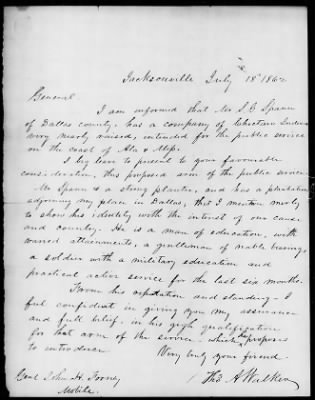 Jacksonville July 18th 1862
General
I am informed that Mr S. G Spann
of Dallas county, has a company of Choctaw Indians
very nearly raised, intended for the public service
on the coast of Ala & Mip.
I beg leave to present to your favourable
consideration, this proposed arm of the public service
Mr Spann is a strong planter, and has a plantation
adjoining my place in Dallas; this I mention merely
to show his identity with the interest of our cause
and country. He is a man of education, with
varied attainments, a gentleman of noble bearing
a soldier with a military education and
practical active service for the last six months.
From his reputation and standing. I
feel confident in giving you my assurance
and full belief, in his high qualification
for that arm of the service which he proposes
to introduce
Very truly your friend
Thos A Walker
Genl John H. Forney
Mobile.